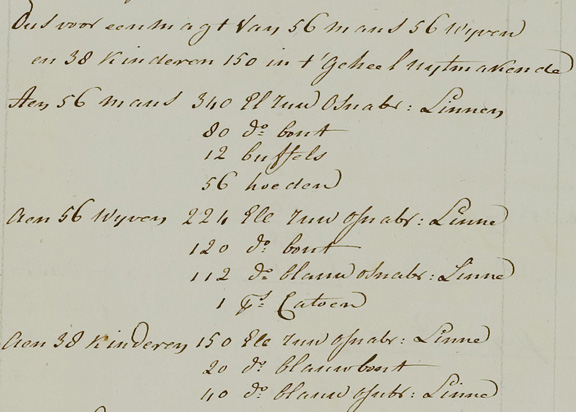 Dus voor een magt van 56 mans 56 Wyven
en 38 Kinderen 150 in t'geheel uytmakende
Aen 56 mans 340 El ruw Osnabr: Linnen
80 do bont
12 buffels
56 hoeden
Aen 56 Wyven 224 Ele ruw Osnabr: Linne
120 do bont
112 do blauw osnabr: Linne
1 ps Catoen
Aen 38 Kinderen 150 Ele ruw Osnabr: Linne
20 do blauw bont
40 do blauw osnbr: Linne